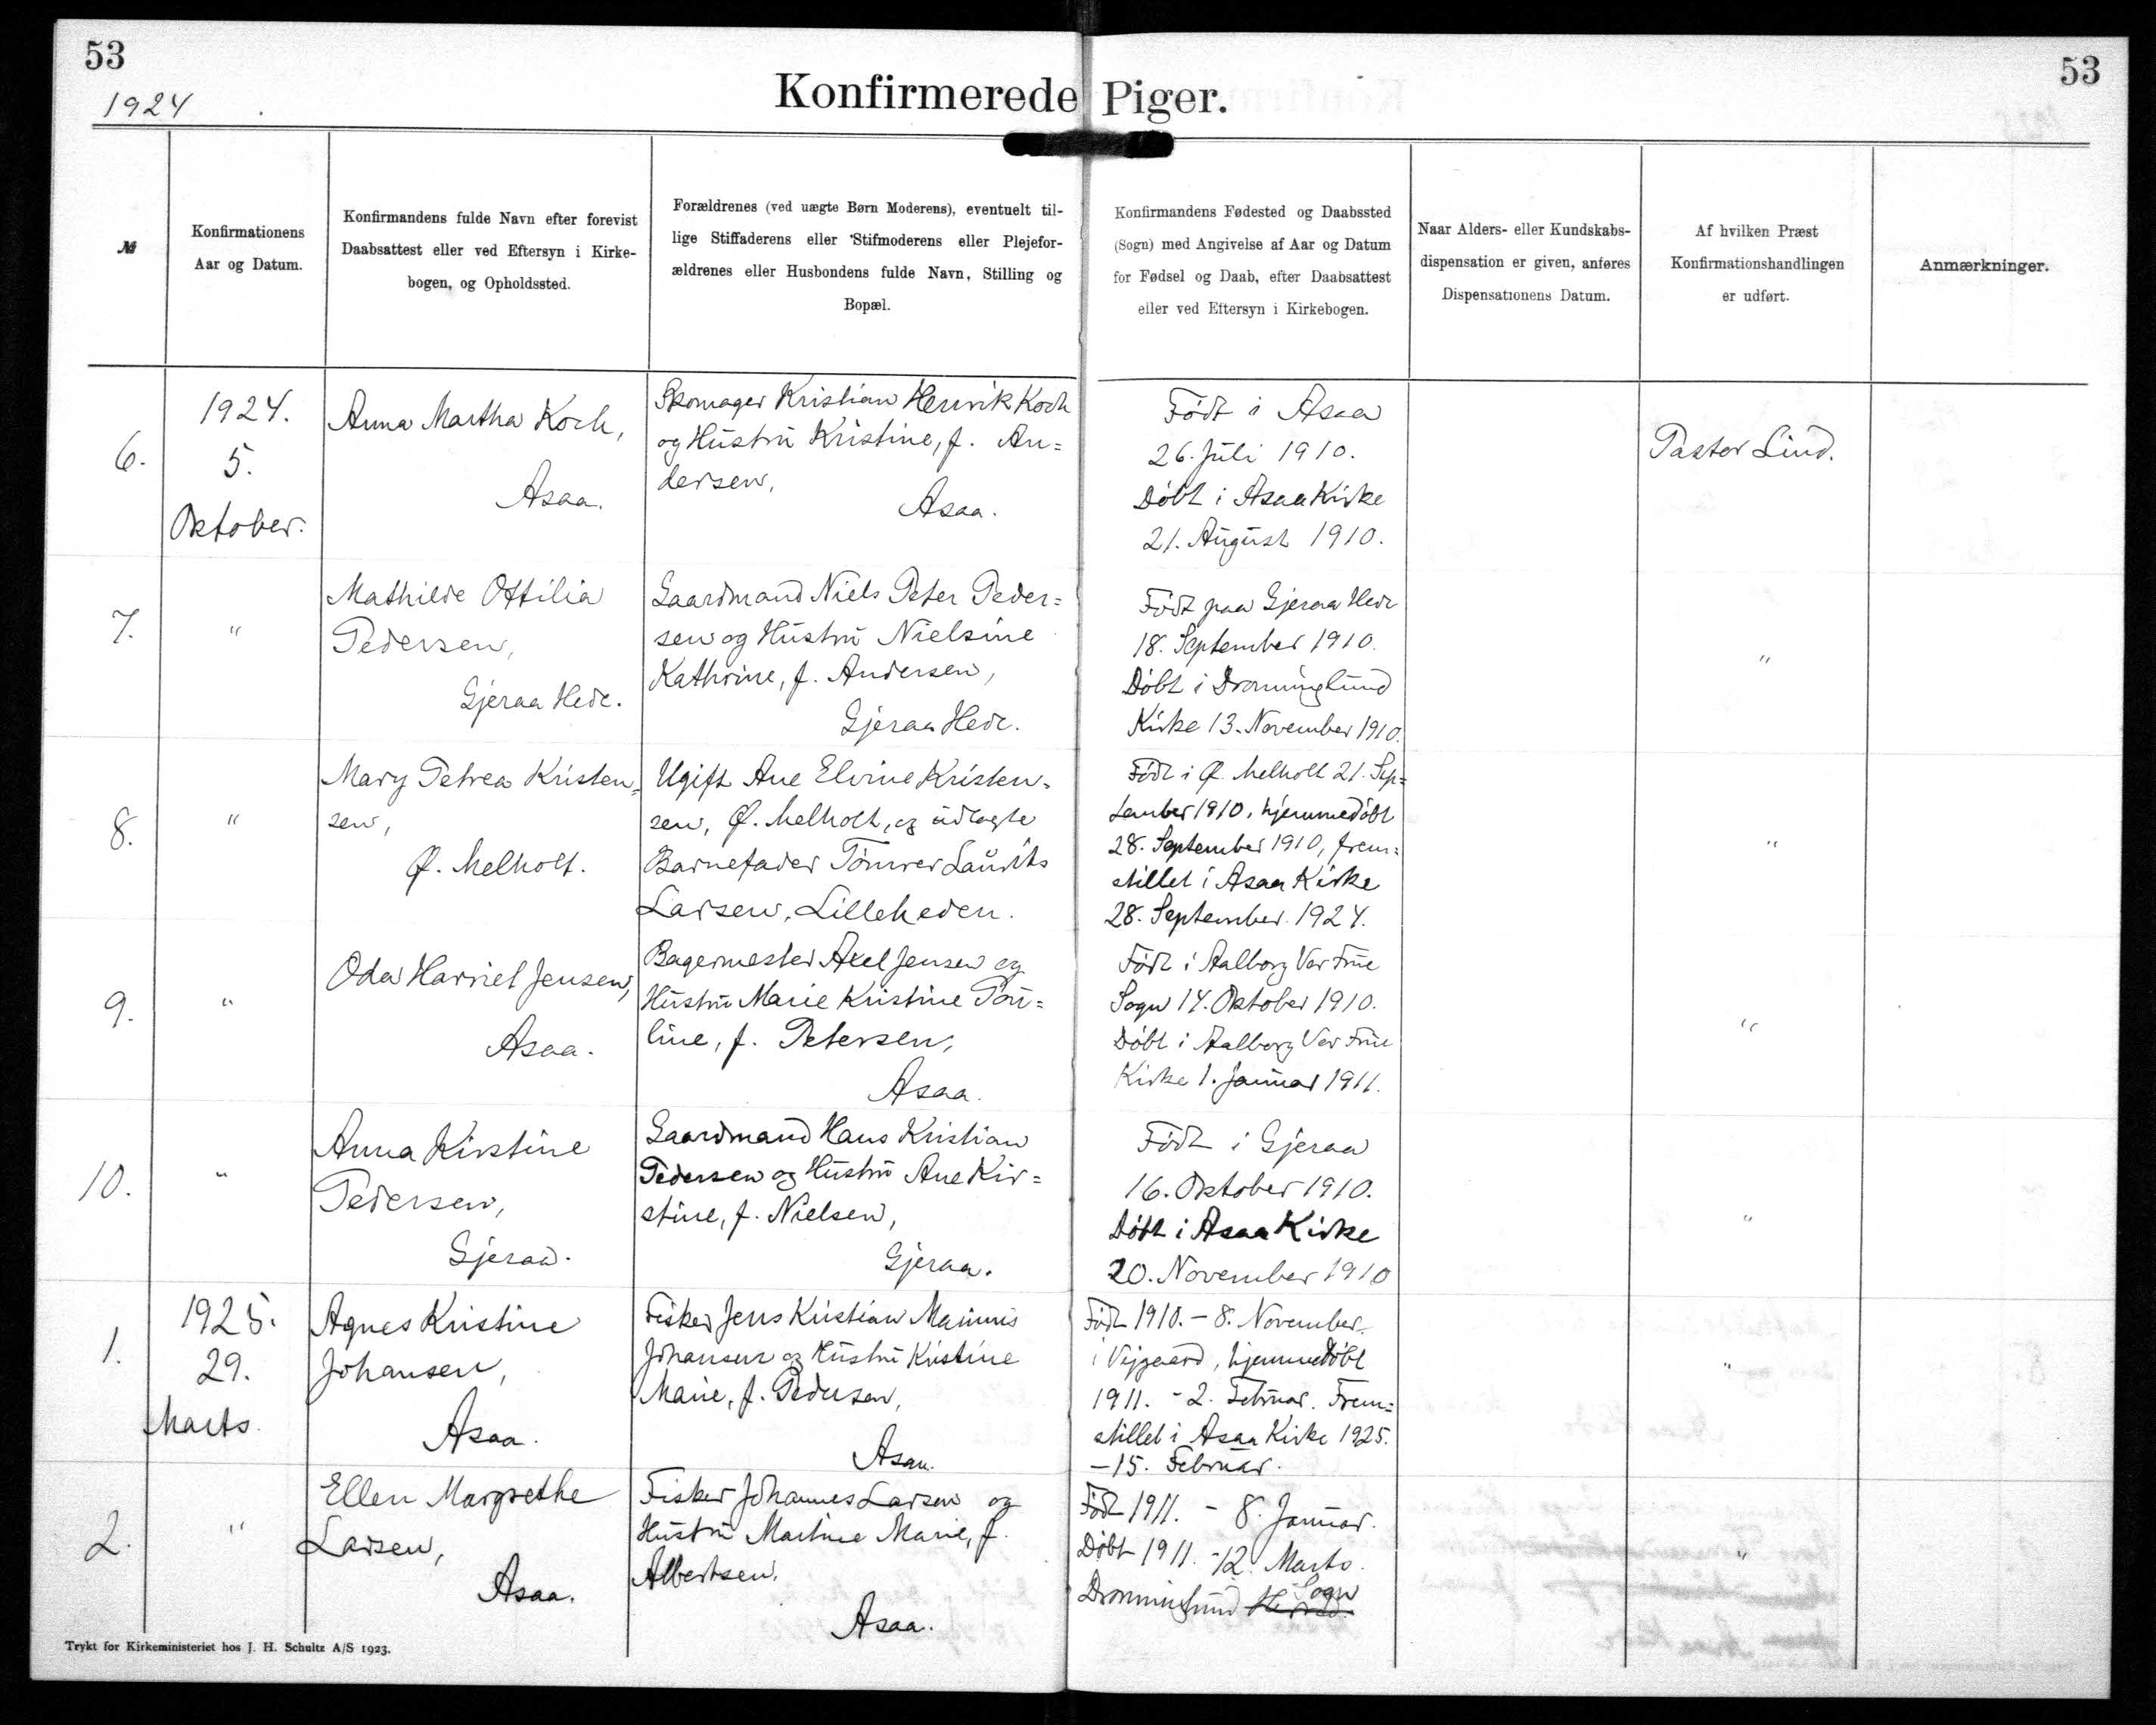 53
53
1924
Konfirmerede Piger.
№
Konfirmationens
Aar og Datum.
Konfirmandens fulde Navn efter forevist
Daabsattest eller ved Eftersyn i Kirke-
bogen, og Opholdssted.
Forældrenes (ved uægte Børn Moderens), eventuelt til-
lige Stiffaderens eller Stifmoderens eller Plejefor-
ældrenes eller Husbondens fulde Navn, Stilling og
Bopæl.
Konfirmandens Fødested og Daabssted
(Sogn) med Angivelse af Aar og Datum
for Fødsel og Daab, efter Daabsattest
eller ved Eftersyn i Kirkebogen.
Naar Alders- eller Kundskabs-
dispensation er given, anføres
Dispensationens Datum.
Af hvilken Præst
Konfirmationshandlingen
er udført.
Anmærkninger.
6.
1924.
5.
Oktober.
Anna Martha Koch,
Asaa.
Skomager Kristian Henrik Koch
og Hustru Kristine, f. An=
dersen,
Asaa.
Født i Asaa
26. Juli 1910.
Døbt i Asaa Kirke
21. August 1910.
Pastor Lind.
7.
"
Mathilde Ottilia
Pedersen,
Gjeraa Hede.
Gaardmand Niels Peter Peder=
sen og Hustru Nielsine
Kathrine, f. Andersen,
Gjeraa Hede.
Født paa Gjeraa Hede
18. September 1910.
Døbt i Dronninglund
Kirke 13. November 1910.
"
8.
"
Mary Petrea Kristen=
sen,
Ø. Melholt.
Ugift Ane Elvine Kristen=
sen, Ø. Melholt, og udlagte
Barnefader Tømrer Laurits
Larsen, Lilleheden.
Født i Ø. Melholt 21. Sep=
tember 1910, hjemmedøbt
28. September 1910, frem=
stillet i Asaa Kirke
28. September 1924.
"
9.
"
Oda Harriet Jensen,
Asaa.
Bagermester Axel Jensen og
Hustru Marie Kristine Pou=
line, f. Petersen,
Asaa.
Født i Aalborg Vor Frue
Sogn 14. Oktober 1910.
Døbt i Aalborg Vor Frue
Kirke 1. Januar 1911.
"
10.
"
Anna Kirstine
Pedersen,
Gjeraa.
Gaardmand Hans Kristian
Pedersen og Hustru Ane Kir=
stine, f. Nielsen,
Gjeraa.
Født i Gjeraa
16. Oktober 1910.
Døbt i Asaa Kirke
20. November 1910
"
1.
1925.
29.
Marts.
Agnes Kristine
Johansen,
Asaa.
Fisker Jens Kristian Marinus
Johansen og Hustru Kristine
Marie, f. Pedersen,
Asaa.
Født 1910. - 8. November.
i Vejgaard, hjemmedøbt
1911. - 2. Februar. Frem=
stillet i Asaa Kirke 1925.
- 15. Februar.
"
2.
"
Ellen Margrethe
Larsen,
Asaa.
Fisker Johannes Larsen og
Hustru Martine Marie, f.
Albertsen,
Asaa.
Født 1911. - 8. Januar.
Døbt 1911. - 12. Marts.
Dronninglund Herred. Sogn
"
Trykt for Kirkeministeriet hos J. H. Schultz A/S 1923.